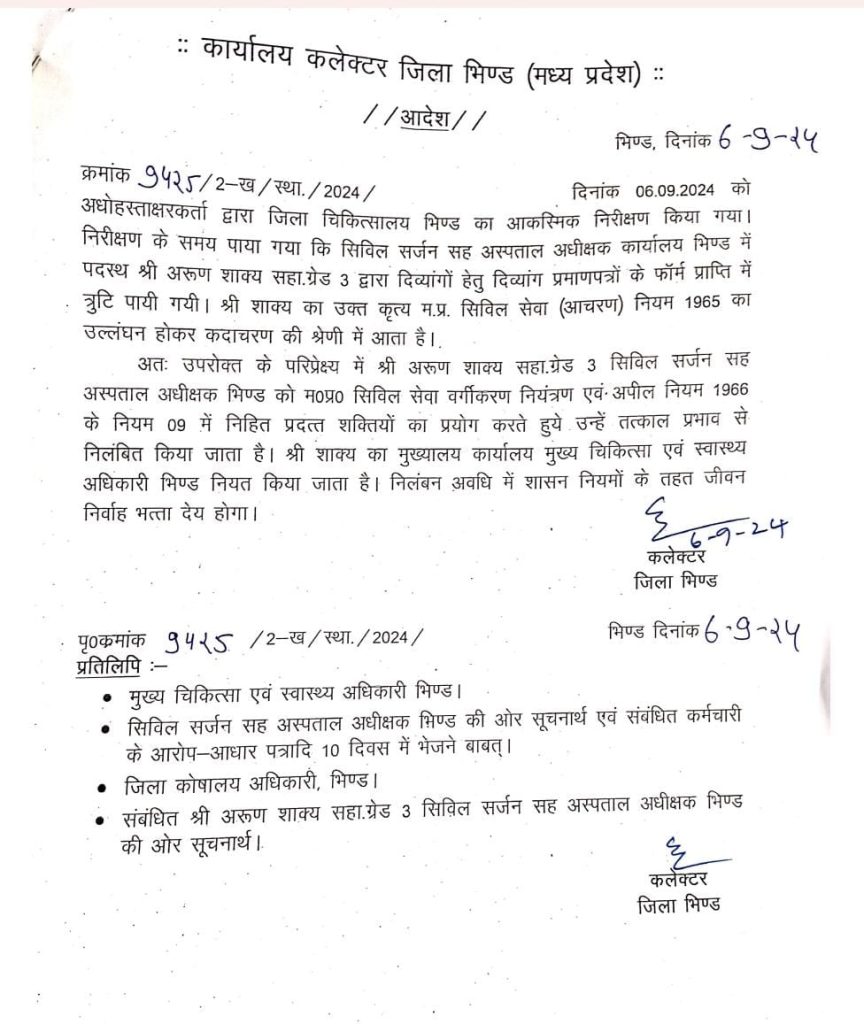 :: कार्यालय कलेक्टर जिला भिण्ड (मध्य प्रदेश) ::
//आदेश//
भिण्ड, दिनांक 6-9-24
क्रमांक 9425/2–ख/स्था./2024/ दिनांक 06.09.2024 को
अधोहस्ताक्षरकर्ता द्वारा जिला चिकित्सालय भिण्ड का आकस्मिक निरीक्षण किया गया।
निरीक्षण के समय पाया गया कि सिविल सर्जन सह अस्पताल अधीक्षक कार्यालय भिण्ड में
पदस्थ श्री अरूण शाक्य सहा.ग्रेड 3 द्वारा दिव्यांगों हेतु दिव्यांग प्रमाणपत्रों के फॉर्म प्राप्ति में
त्रुटि पायी गयी। श्री शाक्य का उक्त कृत्य म.प्र. सिविल सेवा (आचरण) नियम 1965 का
उल्लंघन होकर कदाचरण की श्रेणी में आता है।
अतः उपरोक्त के परिप्रेक्ष्य में श्री अरूण शाक्य सहा.ग्रेड 3 सिविल सर्जन सह
अस्पताल अधीक्षक भिण्ड को म0प्र0 सिविल सेवा वर्गीकरण नियंत्रण एवं अपील नियम 1966
के नियम 09 में निहित प्रदत्त शक्तियों का प्रयोग करते हुये उन्हें तत्काल प्रभाव से
निलंबित किया जाता है। श्री शाक्य का मुख्यालय कार्यालय मुख्य चिकित्सा एवं स्वास्थ्य
अधिकारी भिण्ड नियत किया जाता है। निलंबन अवधि में शासन नियमों के तहत जीवन
निर्वाह भत्ता देय होगा।
6-9-24
कलेक्टर
जिला भिण्ड
पृ0क्रमांक 9425 /2–ख/स्था./2024/ भिण्ड दिनांक 6-9-24
प्रतिलिपि :–
• मुख्य चिकित्सा एवं स्वास्थ्य अधिकारी भिण्ड।
• सिविल सर्जन सह अस्पताल अधीक्षक भिण्ड की ओर सूचनार्थ एवं संबंधित कर्मचारी
के आरोप–आधार पत्रादि 10 दिवस में भेजने बाबत्।
• जिला कोषालय अधिकारी, भिण्ड।
• संबंधित श्री अरूण शाक्य सहा.ग्रेड 3 सिविल सर्जन सह अस्पताल अधीक्षक भिण्ड
की ओर सूचनार्थ।
कलेक्टर
जिला भिण्ड